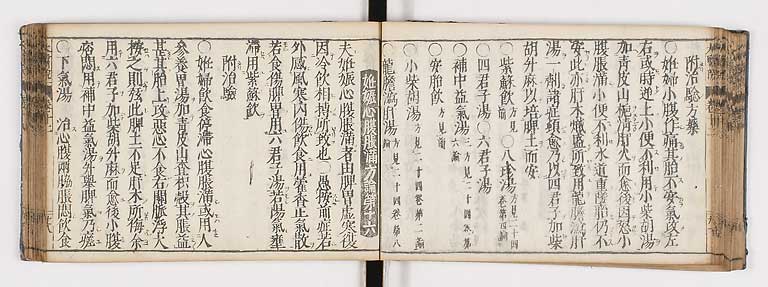 附治驗方藥
○妊婦小腹作痛其胎不安氣攻左
右或時逆上小便不利用小柴胡湯
加青皮山梔清肝火而愈後因怒小
腹脹滿小便不利水道重墜胎仍不
安此亦肝木熾盛所致用龍膽瀉肝
湯一劑諸症頓愈乃以四君子加柴
胡升麻以培脾土而安
○紫蘇飲 方見 ○八珍湯 方見二十四卷第四論
○四君子湯 ○六君子湯
○補中益氣湯 方見二十四卷第六論
○安胎飲 方見
○小柴胡湯 方見二十四卷第二論
龍膽瀉肝湯 方見二十四卷第八
妊娠心腹脹滿方論第十六
夫妊娠心腹脹滿者由脾胃虛寒復
因冷飲相搏所致也○愚按前症若
外感風寒内傷飲食用藿香正氣散
若食傷脾胃用六君子湯若陽氣壅
滯用紫蘇飲
附治驗
○妊婦飲食停滯心腹脹滿或用人
參養胃湯加青皮山査枳殼其脹益
甚其胎上攻惡心不食右關脈浮大
按之則弦此脾土不足肝木所侮余
用六君子加柴胡升麻而愈後小腹
痞悶用補中益氣湯升舉脾氣乃瘥
○下氣湯 治心腹兩脇脹悶飲食